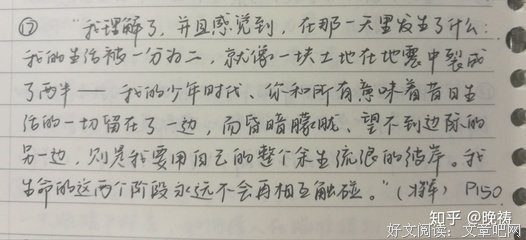 ⑰ "我理解了，并且感觉到，在那一天里发生了什么：
我的生活被一分为二，就像一块土地在地震中裂成
了两半——我的少年时代、你和所有意味着昔日生
活的一切留在了一边，而昏暗朦胧、望不到边际的
另一边，则是我要用自己的整个余生流浪的彼岸。我
生命的这两个阶段永远不会再相互触碰。"（将军） P150
知乎 @晚祷
好文阅读：文章吧网